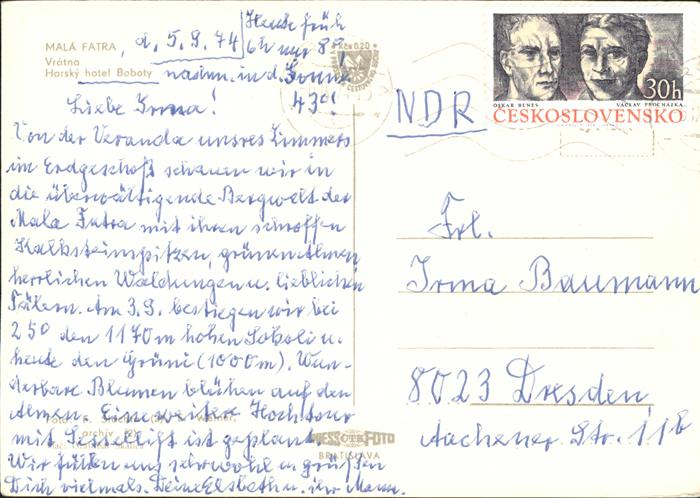 MALÁ FATRA
Vrátna
Horský hotel Boboty
d. 5.9.74
Heute früh
6h nur 8°!
nachm. in d. Sonne
43°!
Liebe Irma!
Von der Veranda unsres Zimmers
im Erdgeschoß schauen wir in
die überwältigende Bergwelt der
Mala Fatra mit ihren schroffen
Kalksteinspitzen, grünen Almen,
herrlichen Waldungen u. lieblichen
Tälern. Am 3.9. bestiegen wir bei
25° den 1170m hohen Sokoli u.
heute den Grúni (1000m). Wun-
derbare Blumen blühen auf den
Almen. Eine weitere Hochtour
mit Sessellift ist geplant.
Wir fühlen uns sehr wohl u. grüßen
Dich vielmals. Deine Elsbeth u. ihr Mann.
PRESSFOTO
BRATISLAVA
NDR
OSKAR BENEŠ
VÁCLAV PROCHÁZKA
30h
ČESKOSLOVENSKO
Frl.
Irma Baumann
8023 Dresden
Aachener Str. 11b